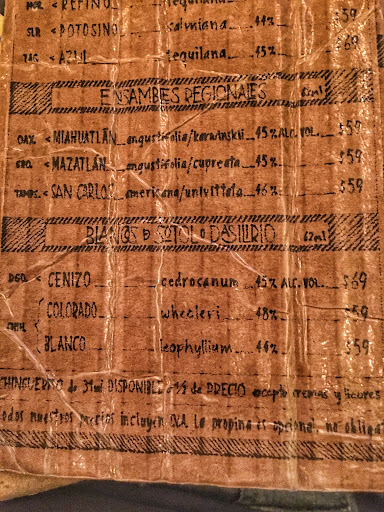 < REFINO tequilana
SLP < POTOSINO salmiana 44% $59
JAL < AZUL tequilana 45% $69
ENSAMBLES REGIONALES 62ml
OAX. < MIAHUATLÁN angustifolia/karwinskii 45% ALC. VOL. $59
GRO. < MAZATLÁN angustifolia/cupreata 45% $59
TAMPS. < SAN CARLOS americana/univittata 46% $59
BLANCOS D SOTOL O DASILIRIO 62ml
DGO. < CENIZO cedrosanum 45% ALC. VOL. $69
COLORADO wheeleri 48% $59
CHIH.
BLANCO leophyllium 44% $59
CHINGUERITO de 31ml DISPONIBLE a 1/2 de PRECIO excepto cremas y licores
odos nuestros precios incluyen IVA. la propina es opcional, no obliga